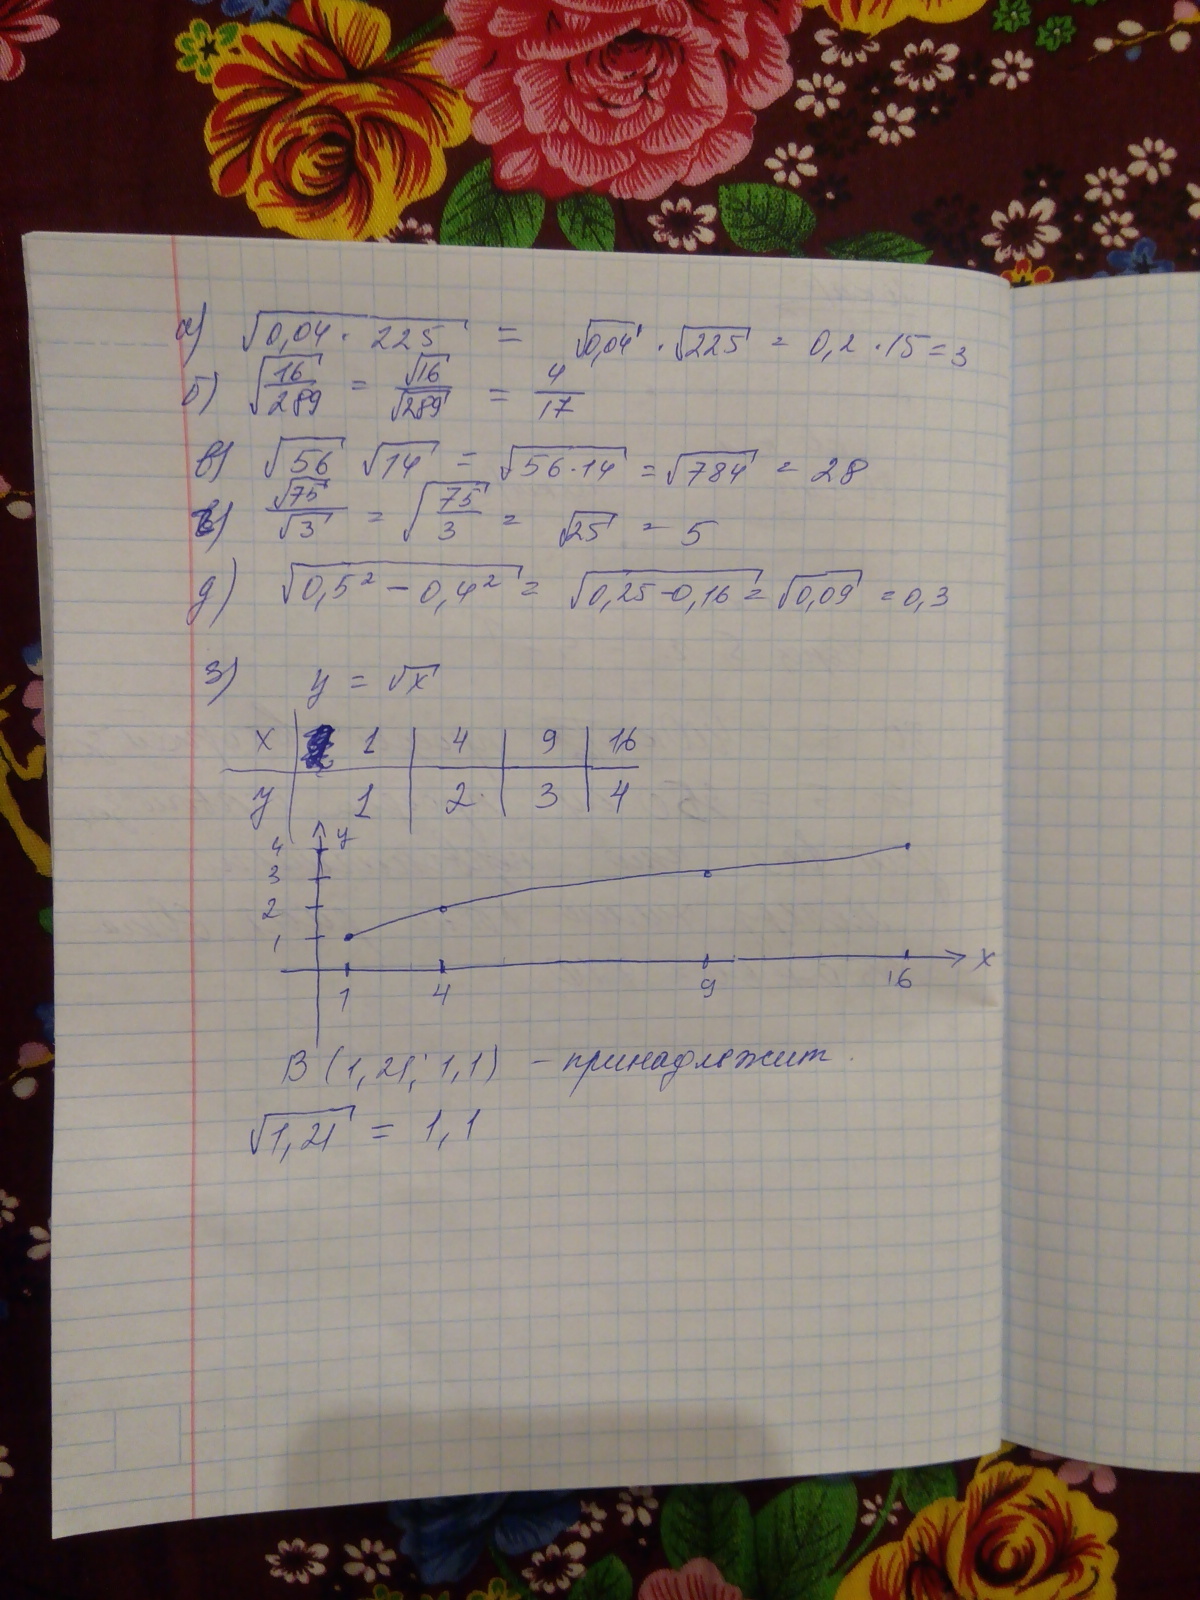 а) √0,04 · 225 = √0,04 · √225 = 0,2 · 15 = 3
б) √16/289 = √16/√289 = 4/17
в) √56 √14 = √56·14 = √784 = 28
√75/√3 = √75/3 = √25 = 5
д) √0,5² - 0,4² = √0,25-0,16 = √0,09 = 0,3
3) y = √x
x 1 4 9 16
y 1 2 3 4
y
4
3
2
1
1 4 9 16 x
B (1,21; 1,1) - принадлежит.
√1,21 = 1,1